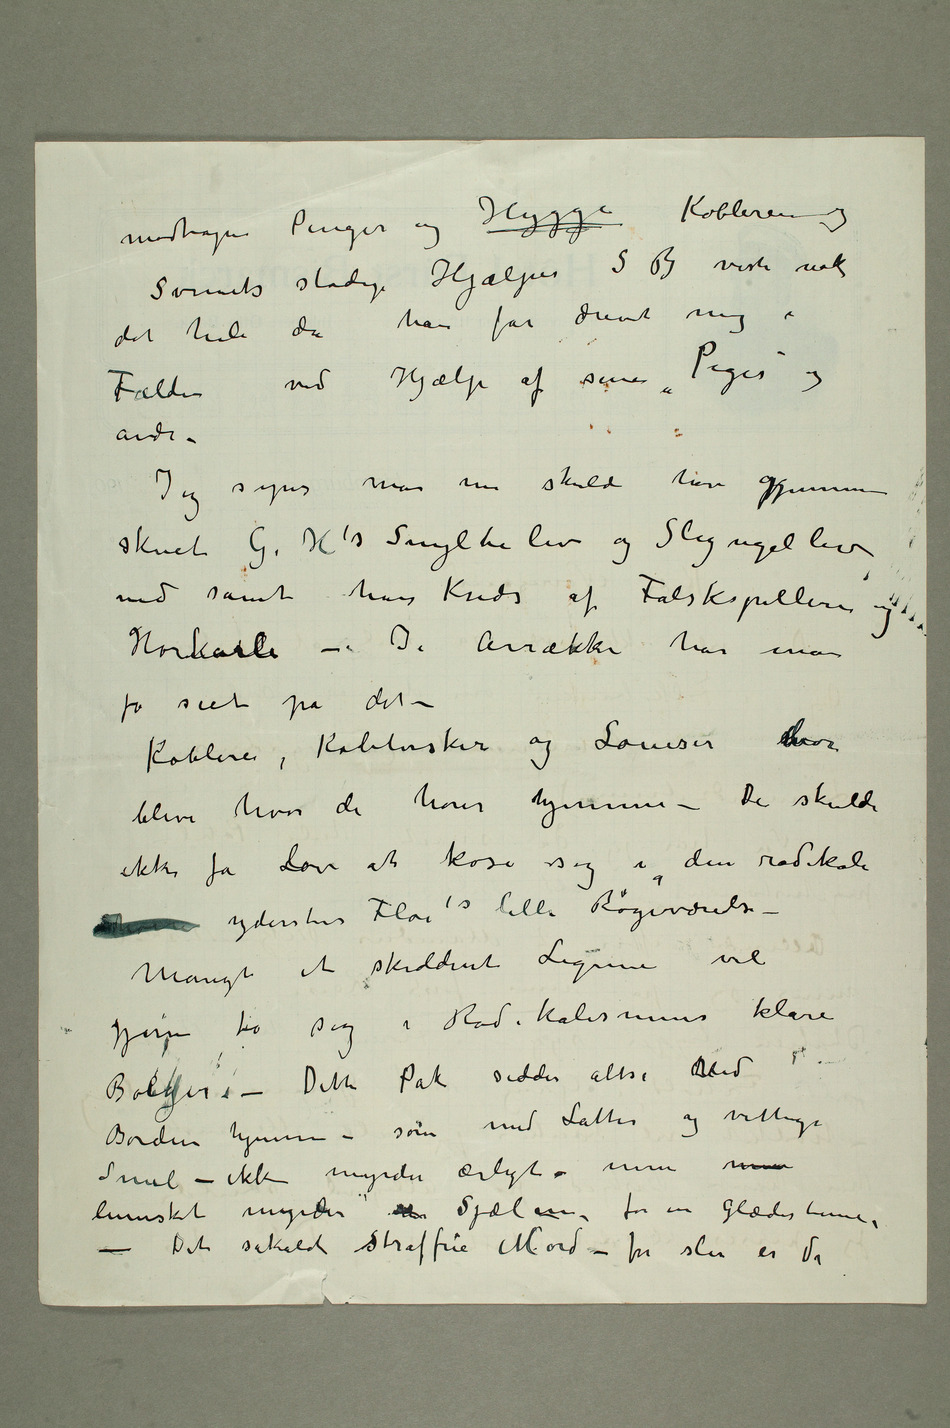 modtagne Penger og Hygge Kobleren og
Svinets stadige Hjælper S B viste nok
det hele da han før drevet mig i
Fælden ved Hjælp af sine „Piger“ og
andr–
Jeg synes man nu skulde have gjennem
skuet G. H's Snylteliv og Slyngelliv
med samt hans Kreds af Falskspillere og
Horkarle – I Arrække har man
jo seet på det –
Koblere, Koblersker og Louiser bør
blive hvor de hører hjemme – De skulde
ikke få Lov at kose sig i den radikale
yderste Fløi's lille Røgeværelse –
Mangt et skiddent Legeme vil
gjerne to sig i Radikalismens klare
Bølger. – Dette Pak sidder altså ved
Bordene hjemme – som med Latter og vittige
Smil – ikke myrder ærligt – men
lumsket myrder Sjælen, for en Glædestime,
– Det såkaldt straffrie Mord – for slu er de